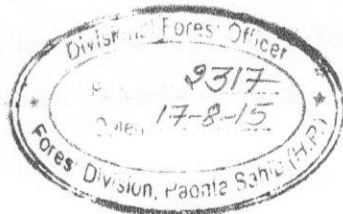 Divisional Forest Officer
2317
Dated 17-8-15
Forest Division, Paonta Sahib (H.P.)